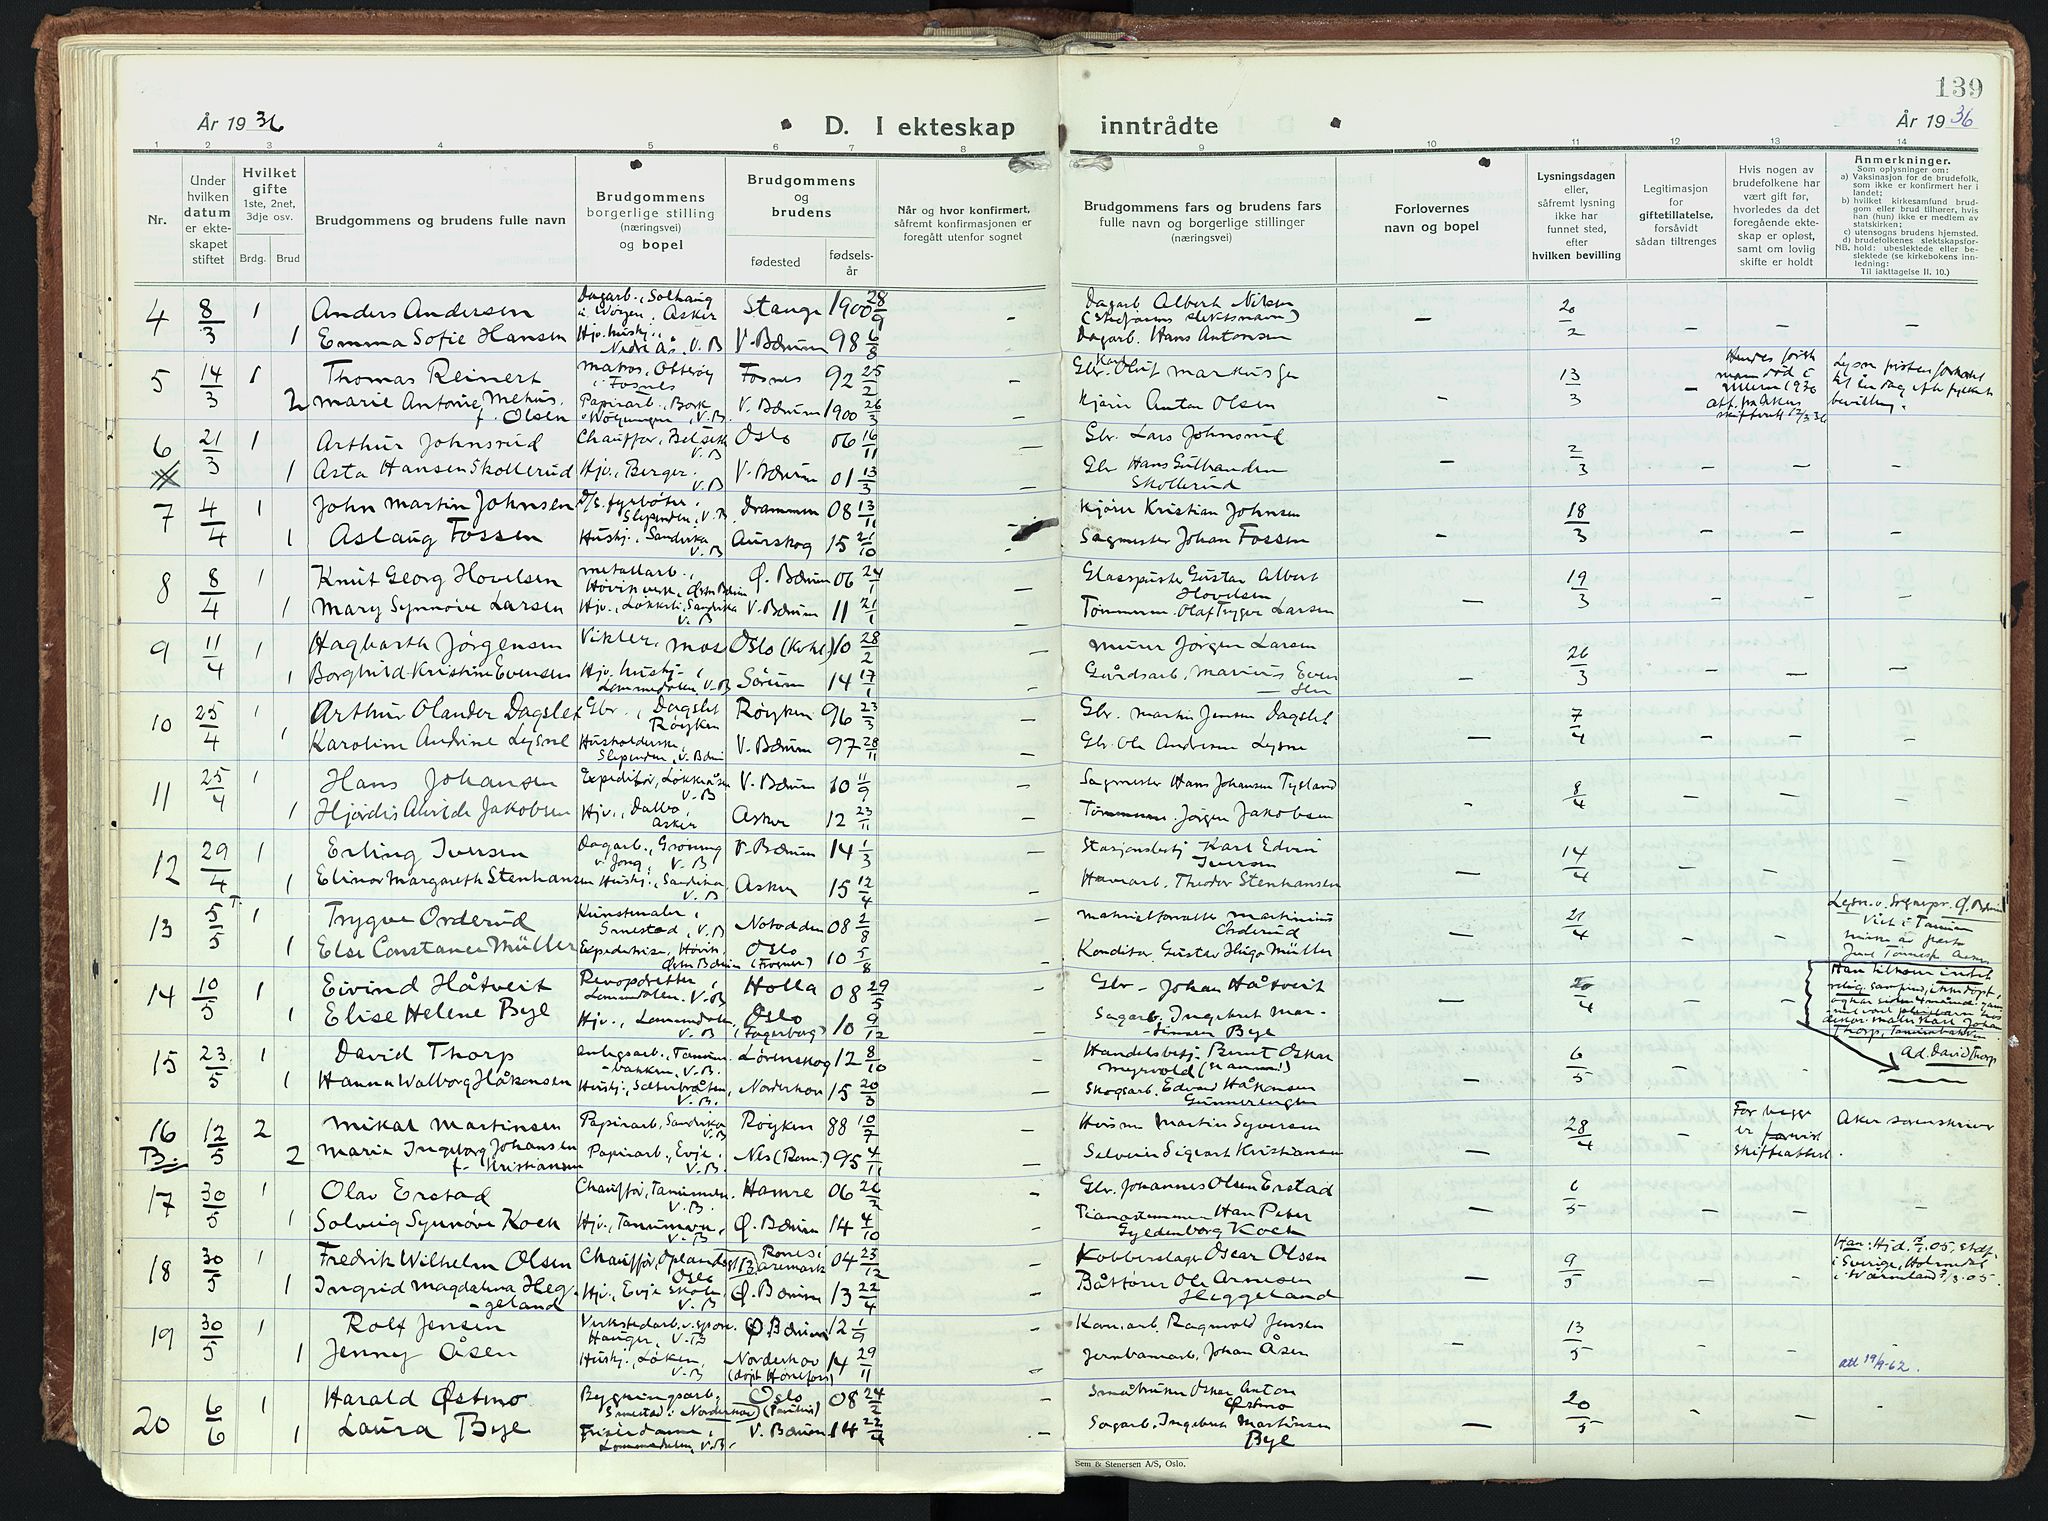 139
År 19 36
D. I ekteskap inntrådte
År 19 36
1 2 3 4 5 6 7 8 9 10 11 12 13 14
Nr.
Under hvilken datum er ekteskapet stiftet
Hvilket gifte 1ste, 2net, 3dje osv.
Brdg. Brud
Brudgommens og brudens fulle navn
Brudgommens borgerlige stilling (næringsvei) og bopel
Brudgommens og brudens
fødested
fødsels-år
Når og hvor konfirmert, såfremt konfirmasjonen er foregått utenfor sognet
Brudgommens fars og brudens fars fulle navn og borgerlige stillinger (næringsvei)
Forlovernes navn og bopel
Lysningsdagen eller, såfremt lysning ikke har funnet sted, efter hvilken bevilling
Legitimasjon for giftetillatelse, forsåvidt sådan tiltrenges
Hvis nogen av brudefolkene har vært gift før, hvorledes da det foregående ekteskap er opløst, samt om lovlig skifte er holdt
Anmerkninger.
Som oplysninger om:
a) Vaksinasjon for de brudefolk, som ikke er konfirmert her i landet;
b) hvilket kirkesamfund brudgom eller brud tilhører, hvis han (hun) ikke er medlem av statskirken;
c) utensogns brudens hjemsted.
d) brudefolkenes slektskapsforhold: ubeslektede eller beslektede (se kirkebokens innledning:
NB.
Til iakttagelse II. 10.)
4 8/3 1 Anders Andersen Dagarb., Solhaug Asker Stange 1900 28/9 - Dagarb. Albert Nilsen - 20/2 - - -
1 Emma Sofie Hansen Hjv. hushj., Nedre Ås, V.B V. Bærum 98 6/8 Dagarb. Hans Antonsen
5 14/3 1 Thomas Reinert Matros, Otterøy i Fosnes Fosnes 92 25/2 Gbr. Karl Oluf Markusen - 13/3 -
2 Marie Antonie Mehus, f. Olsen Papirarb., V.B. V. Bærum 1900 26/3 Kjører Anton Olsen
6 21/3 1 Arthur Johnsrud Chauffør, V.B Oslo 06 16/11 Gbr. Lars Johnsrud - 2/3 - - -
1 Asta Hansen Skollerud Hjv., Berger V.B V. Bærum 01 13/3 Gbr Hans Gulbrandsen Skollerud
7 4/4 1 John Martin Johnsen D/S. fyrbøter, Slependen, V.B. Drammen 08 13/11 - Kjører Kristian Johnsen - 18/3 - - -
1 Aslaug Fossen Hushj., Sandvika V.B Aurskog 15 21/10 Sagmester Johan Fossen
8 8/4 1 Knut Georg Hovelsen Metallarb., Høvik verk, Østre Bærum Ø. Bærum 06 24/1 - Glasspuster Gustav Albert Hovelsen - 19/3 - - -
1 Mary Synnøve Larsen Hjv., Løkkeli, Sandvika V.B. V. Bærum 11 21/1 Tømmerm. Olaf Trygve Larsen
9 11/4 1 Hagbarth Jørgensen Vikler, Moss Oslo 10 28/2 - Murer Jørgen Larsen - 26/3 - - -
1 Borghild Kristine Evensen Hjv. hushj., Lommedalen, V.B Sørum 14 17/1 Gårdsarb. Marius Evensen
10 25/4 1 Arthur Olander Dagslet Gbr., Dagslet Røyken Røyken 96 23/3 - Gbr. Martin Jensen Dagslet - 7/4 - - -
1 Karoline Andrine Lysne Husholderske, Slependen, V. Bærum V. Bærum 97 28/11 Gbr. Ole Andersen Lysne
11 25/4 1 Hans Johansen Expeditør, Løkkeåsen V.B V. Bærum 10 11/9 - Sagmester Hans Johansen Tysland - 8/4 - - -
1 Hjørdis Alvilde Jakobsen Hjv., Dalbo, Asker Asker 12 23/11 Tømmerm. Jørgen Jakobsen
12 29/4 1 Erling Iversen Dagarb., Grøning v. Jong, V.B V. Bærum 14 1/3 - Stasjonsbetj Karl Edvin Iversen - 14/4 - - -
1 Elinor Margareth Stenhansen Hushj., Sandvika, V.B. Asker 15 12/4 Havearb. Theodor Stenhansen
13 5/5 T. 1 Trygve Orderud Kunstmaler, Smestad, V.B Notodden 08 2/8 - Materialforvalter Martinius Orderud - 21/4 - -
1 Else Constance Müller Expeditrise, Høvik, Østre Bærum Oslo (Frogner) 10 5/8 Konditor Gustav Hugo Müller
14 10/5 1 Eivind Håtveit Lommedalen, V.B Holla 08 29/5 - Gbr. Johan Håtveit - 20/4 - -
1 Elise Helene Bye Hjv., Lommedalen, V.B. Oslo (Fagerborg) 10 9/12 Sagarb. Ingebret Martinsen Bye
15 23/5 1 David Thorp Anlegsarb., Tanumbakken, V.B. Lørenskog 12 8/10 - Handelsbetj. Bernt Oskar Myrvold - 6/5 - -
1 Hanna Walborg Håkonsen Hushj., Sæterbråten, V.B. Norderhov 15 20/3 Skogsarb. Edvard Håkonsen Gunnerengen
Han tilhører intet relig. samfund, ikke døpt,
Ad. David Thorp
16 B. 12/5 2 Mikal Martinsen Papirarb, Sandvika V.B Røyken 88 10/7 Husm Martin Syversen 28/4 - For begge er skifteattest. Aker sorenskriver
2 Marie Ingeborg Johansen f. Kristiansen Papirarb., Evje, V.B. Nes (Rom.) 95 4/11 Selveier Sigvart Kristiansen
17 30/5 1 Olav Erstad Chauffør, Tanum V.B. Hamre 06 26/2 - Gbr. Johannes Olsen Erstad - 6/5 - - -
1 Solveig Synnøve Koch Hjv., Tanum V.B Ø. Bærum 14 4/10 Pianostemmer Hans Peter Gyldenborg Koch
18 30/5 1 Fredrik Wilhelm Olsen Chauffør, Oslo Aremark 04 23/12 - Kobberslager Oscar Olsen - 9/5 - -
1 Ingrid Magdalena Heggeland Hjv., Evje Skole, V.B Ø. Bærum 13 22/4 Båtfører Ole Arnesen Heggeland
19 30/5 1 Rolf Jensen Hauger, V.B Ø. Bærum 12 1/9 - Kom.arb. Ragnvald Jensen - 13/5 - - -
1 Jenny Åsen Hushj., Løken, V.B Norderhov (døpt Hønefoss) 14 29/11 Jernbanearb. Johan Åsen
att 19/9-62.
20 6/6 1 Harald Østmo Bygningsarb. Smestad i Norderhov Oslo (Paulus) 08 24/2 - Småbruker Oskar Anton Østmo - 20/5 - - -
1 Laura Bye Frisørdame, Lommedalen, V.B. V. Bærum 14 22/4 Sagarb. Ingebret Martinsen Bye
Sem & Stenersen A/S, Oslo.